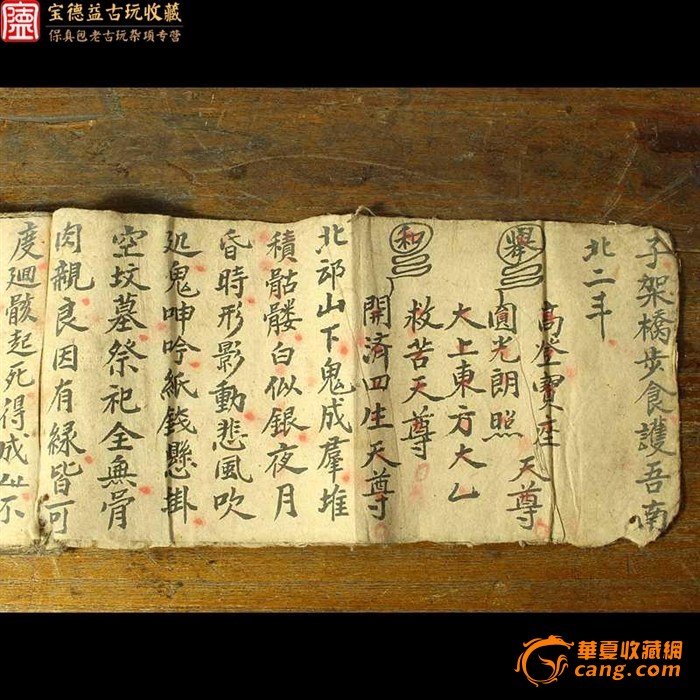 宝德益古玩收藏
保真包老古玩杂项专营
子架橋步食護吾南
北二
舉
高登寶座
圓光朗照
天尊
大上東方大乙
救苦天尊
和
開済四生天尊
北邙山下鬼成羣堆
積骷髏白似銀夜月
昏時形影動悲風吹
処鬼呻吟紙錢懸掛
空坟墓祭祀全無骨
肉親良因有緑皆可
度廻骸起死得成不
華夏收藏網
cang.com